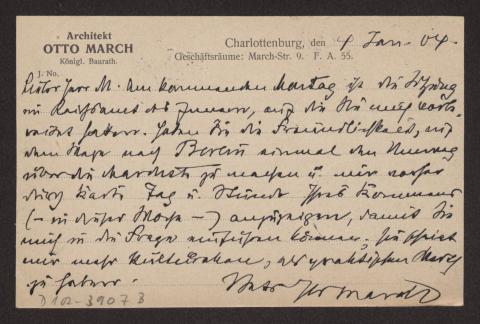 Architekt
OTTO MARCH
Königl. Baurath.
J. No.
Charlottenburg, den 4 Jan. 04.
Geschäftsräume: March-Str. 9. F. A. 55.
Lieber Herr M. Am kommenden Montag ist die Sitzung
im Reichsamt des Innern, auf die Sie mich
haben. Haben Sie die Freundlichkeit, auf
dem Wege nach Berlin einmal den Umweg
über die Marchstr. zu machen u. mir vorher
durch Karte Tag u. Stunde Ihres Kommens
(– in dieser Woche –) anzuzeigen, damit Sie
mich in die Frage einführen können. Es scheint
mir mehr als praktischen Werth
zu haben.
Ihr March
D 102-3907 B